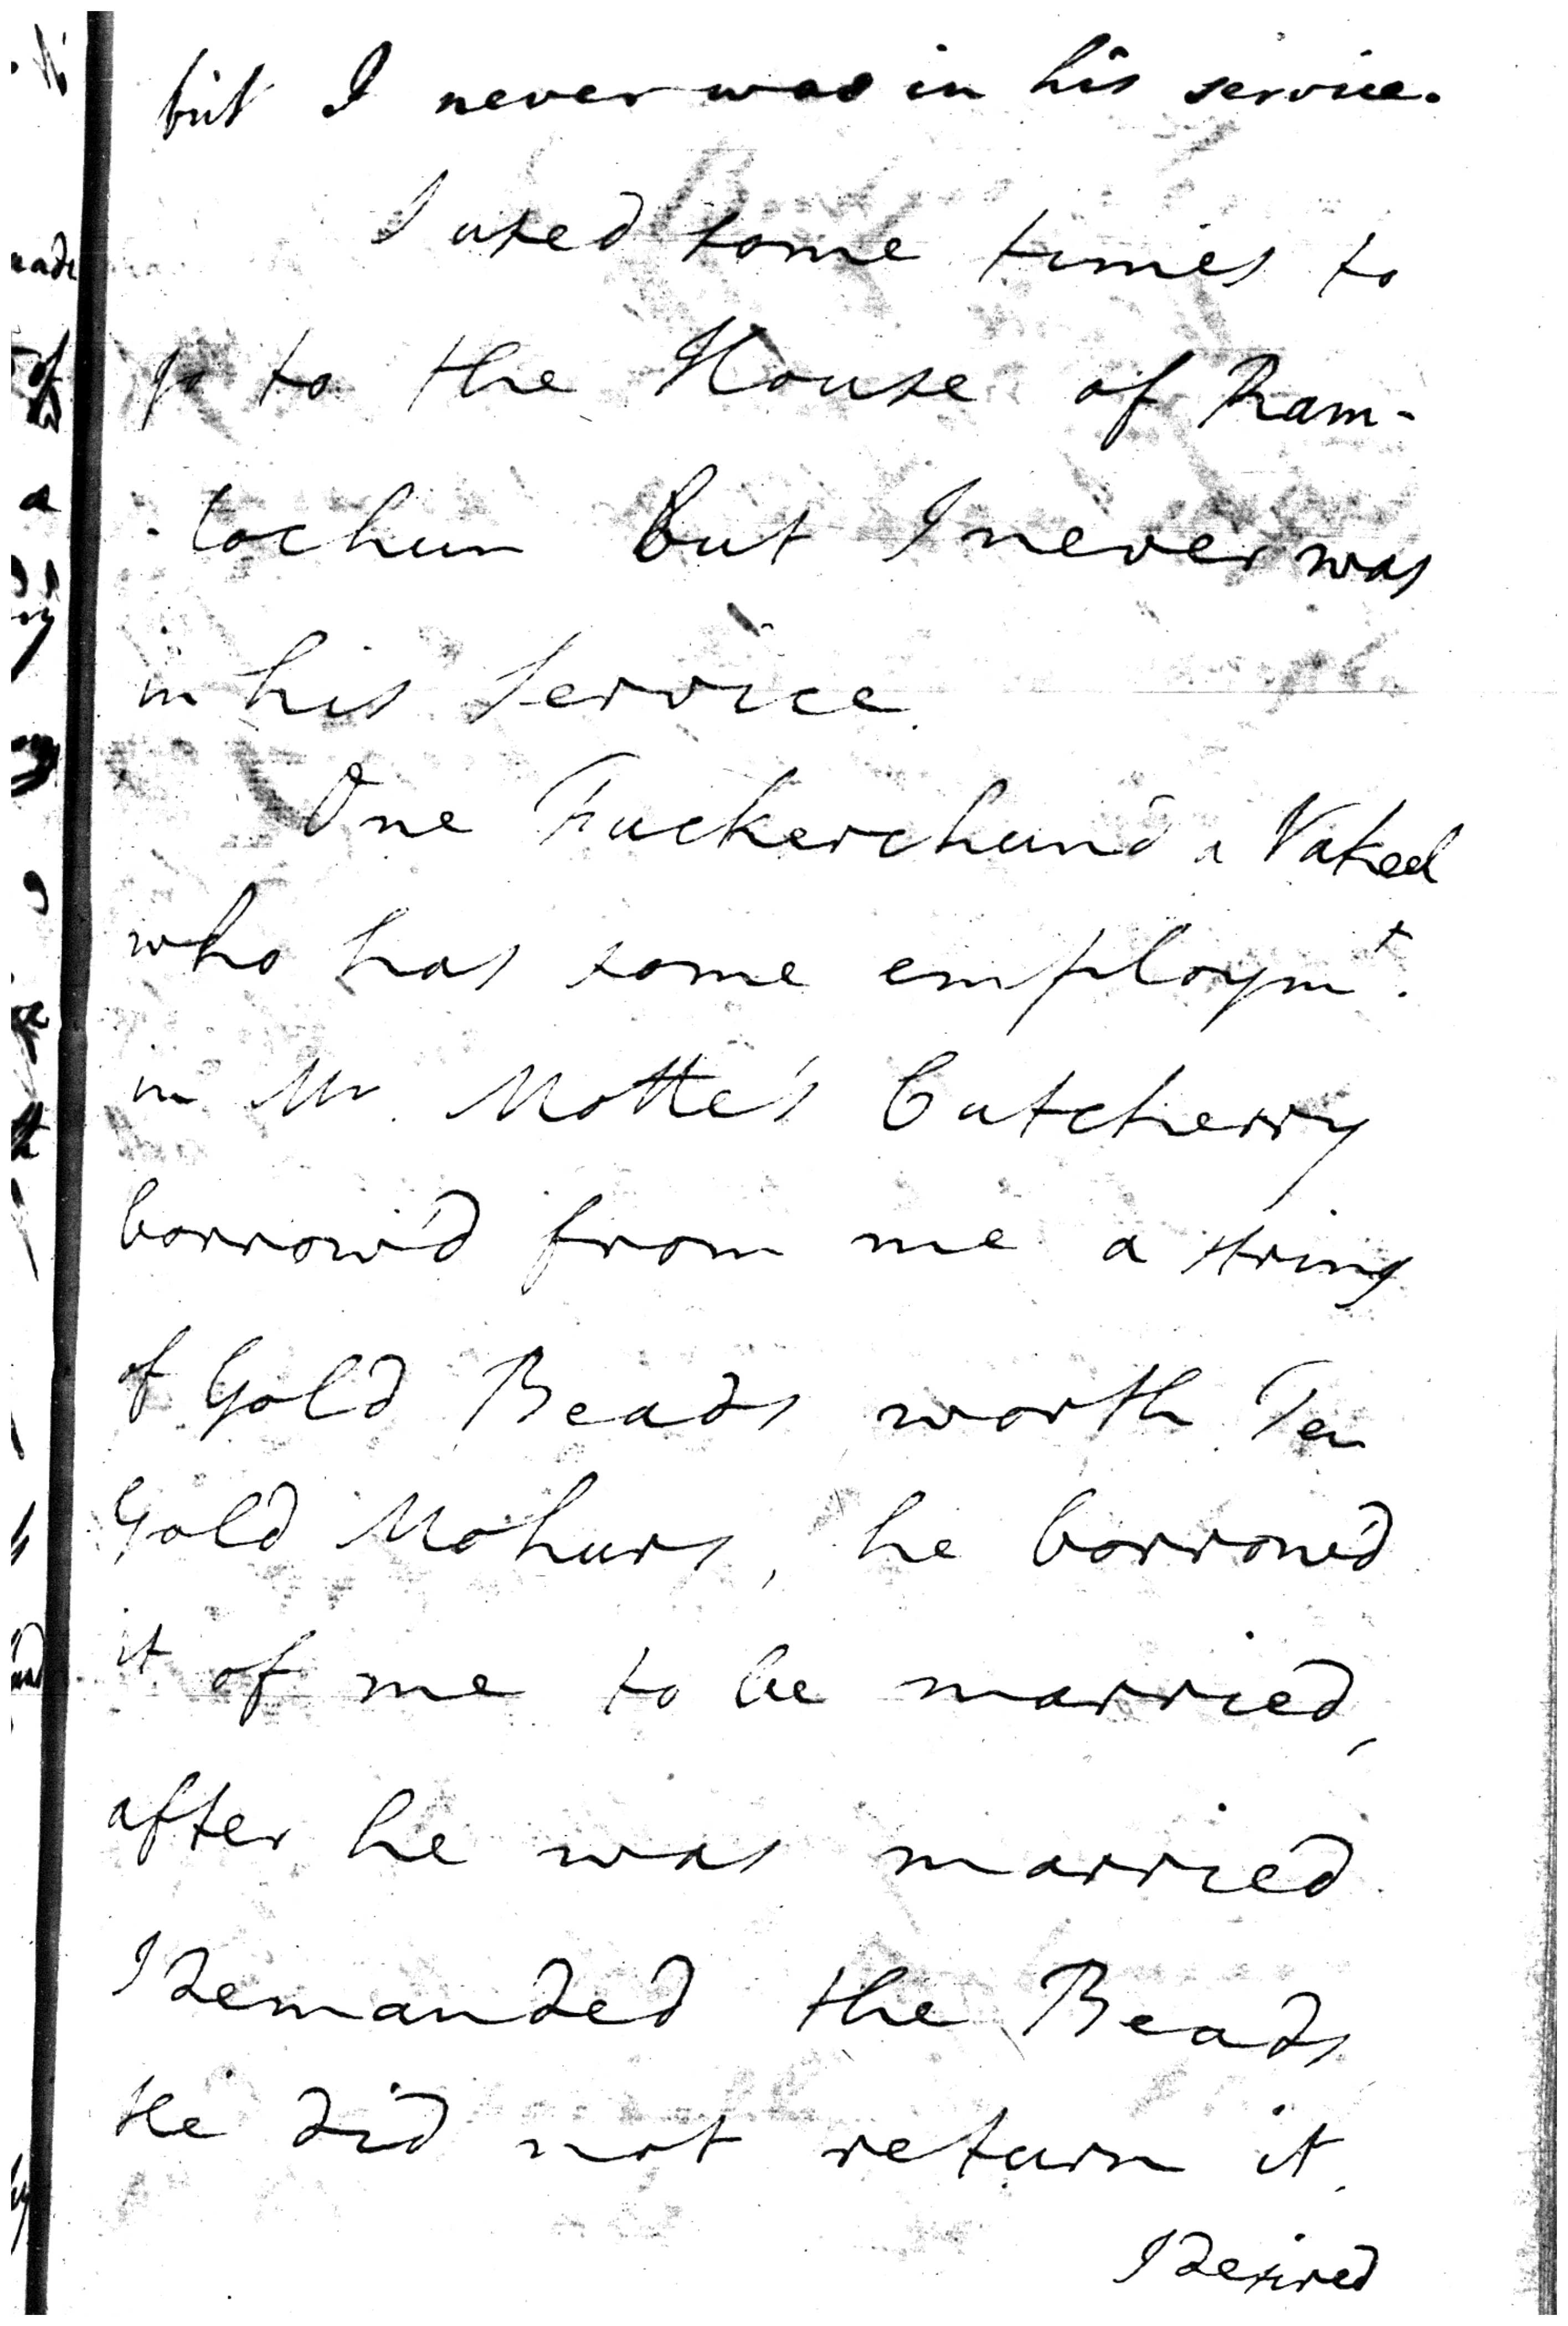 but I never was in his service.
I used some times to
go to the House of Ram-
-tochun but I never was
in his Service.
One Tuckerchund a Vakeel
who has some employmt.
in Mr. Motte's Cutcherry
borrow'd from me a string
of Gold Beads worth Ten
Gold Mohurs, he borrow'd
it of me to be married,
after he was married
I demanded the Beads
He did not return it.
I desired